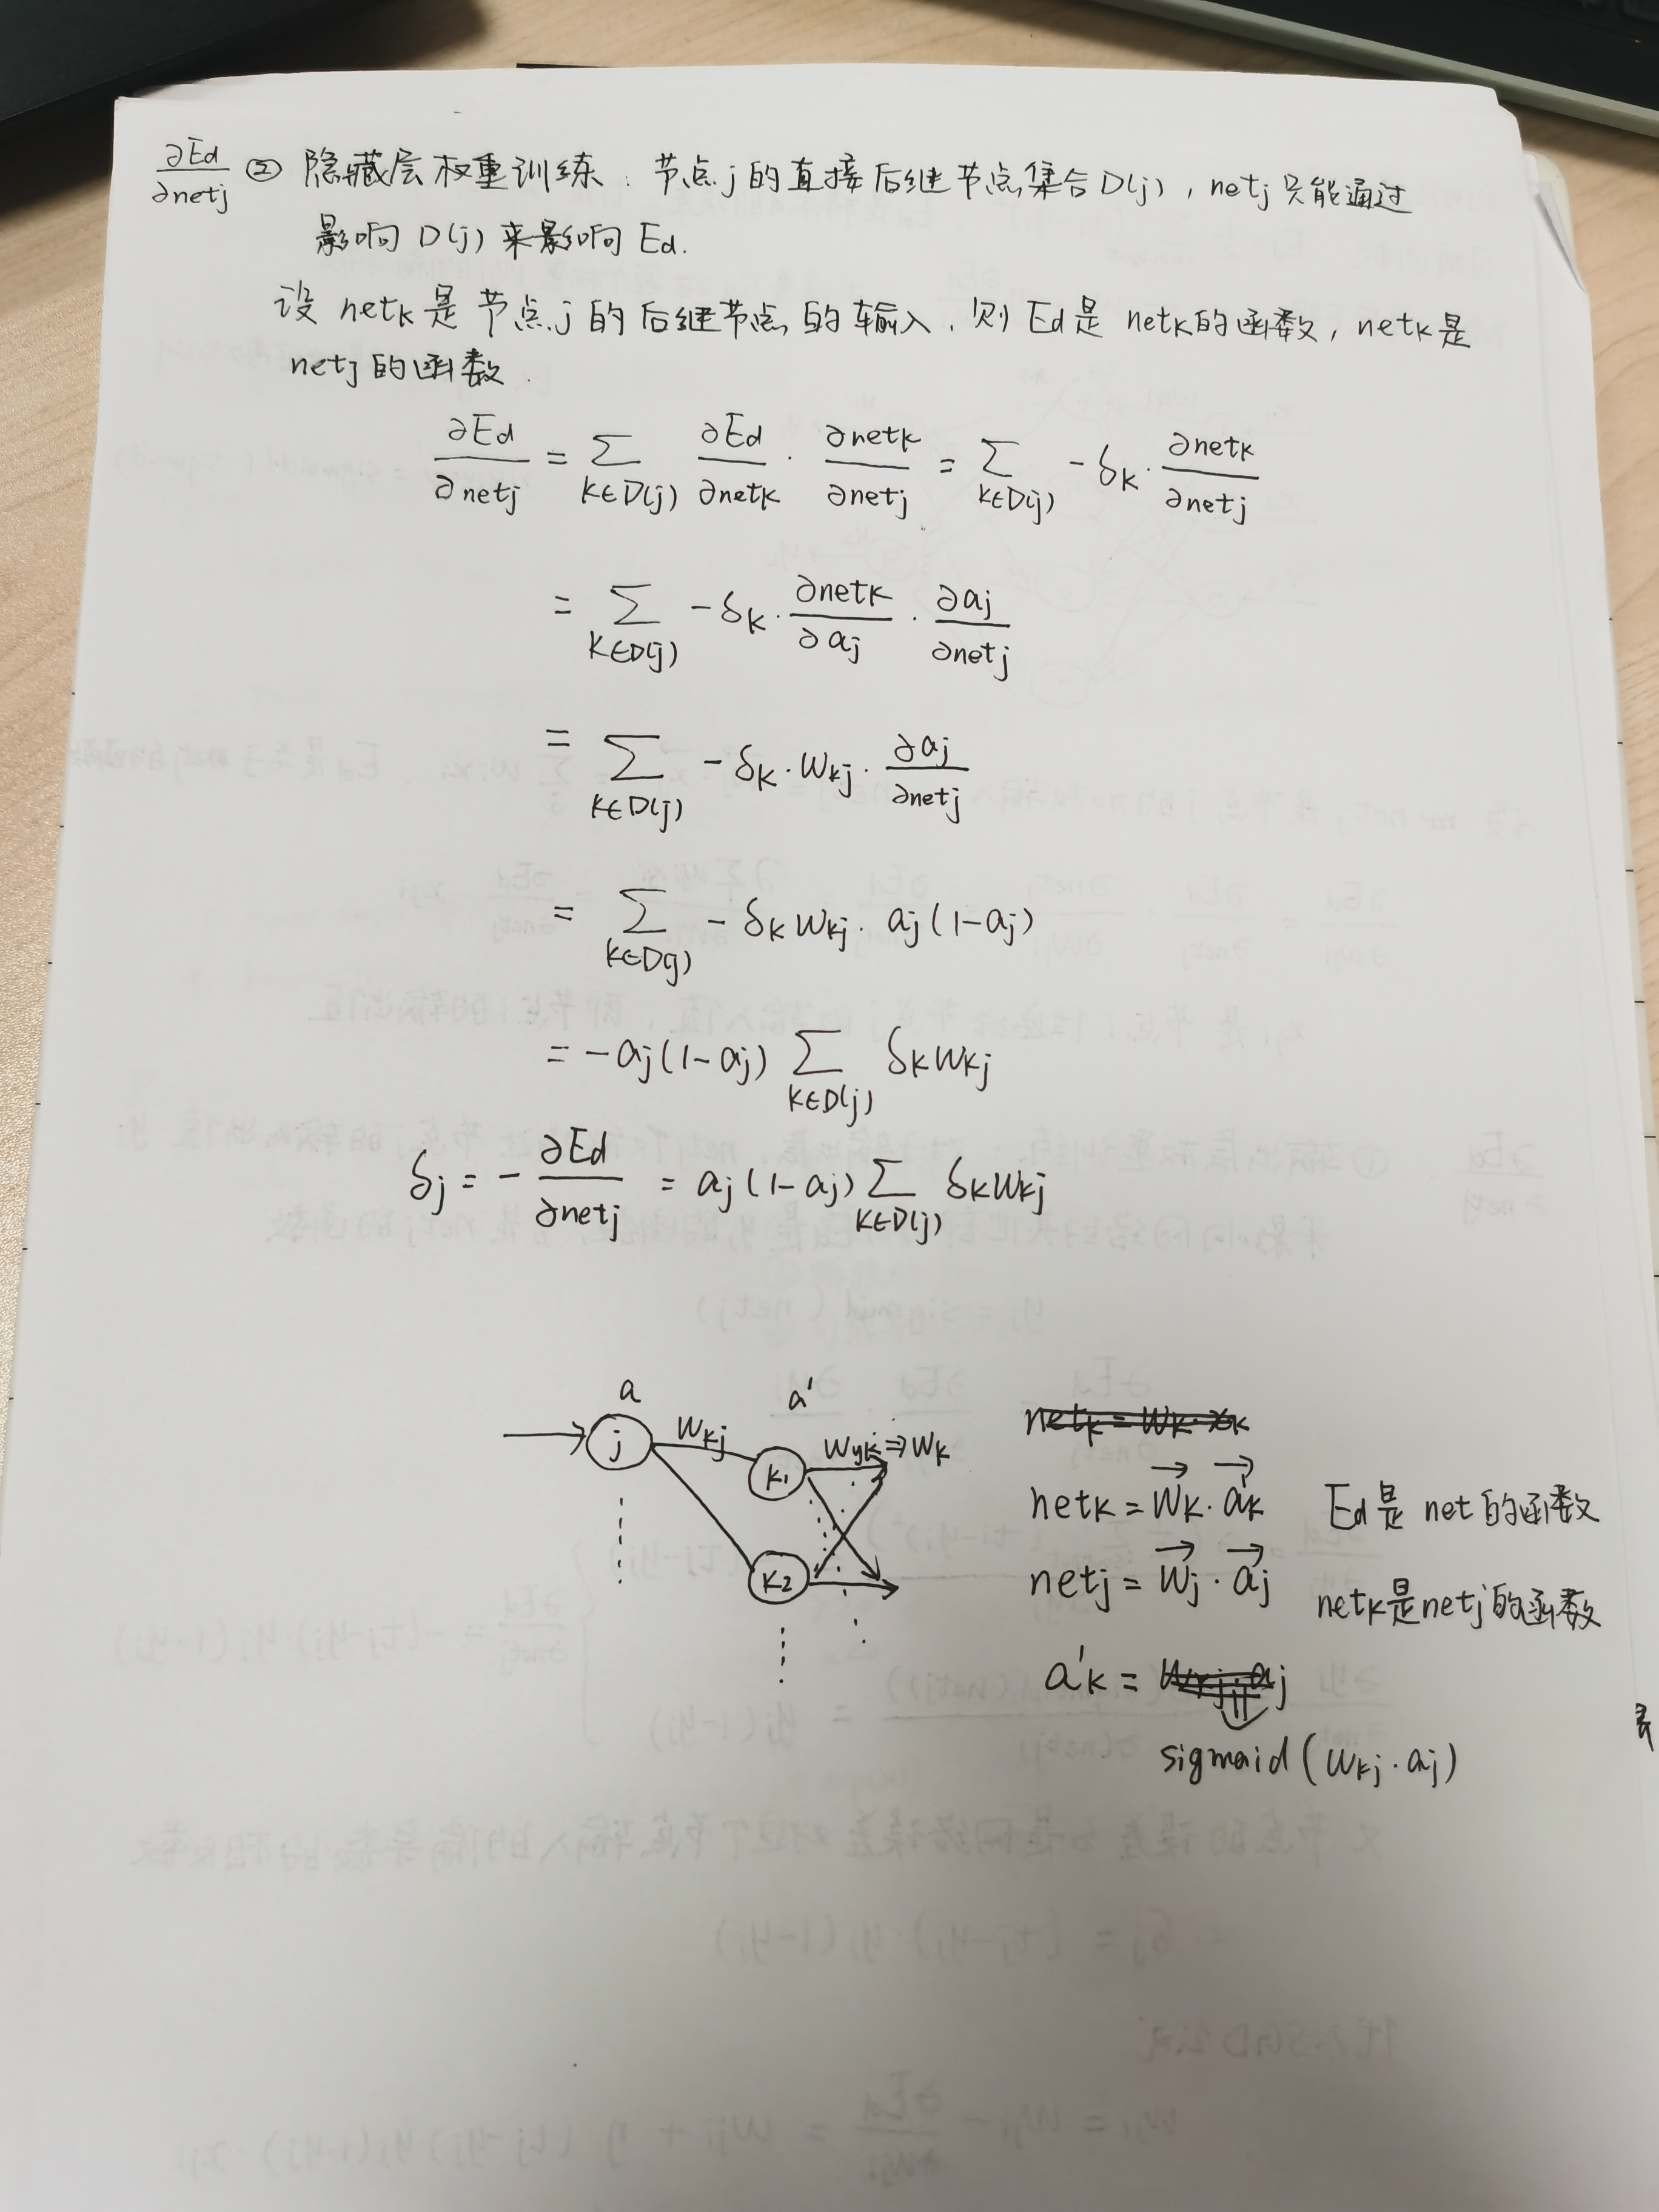 ∂Ed/∂netj ② 隐藏层权重训练：节点j的直接后继节点集合D(j)，netj只能通过
影响D(j)来影响Ed.
设netk是节点j的后继节点的输入，则Ed是netk的函数，netk是
netj的函数.
∂Ed/∂netj = Σ_{k∈D(j)} ∂Ed/∂netk · ∂netk/∂netj = Σ_{k∈D(j)} -δk · ∂netk/∂netj
= Σ_{k∈D(j)} -δk · ∂netk/∂aj · ∂aj/∂netj
= Σ_{k∈D(j)} -δk · Wkj · ∂aj/∂netj
= Σ_{k∈D(j)} -δk Wkj · aj(1-aj)
= -aj(1-aj) Σ_{k∈D(j)} δk Wkj
δj = -∂Ed/∂netj = aj(1-aj) Σ_{k∈D(j)} δk Wkj
a a'
j Wkj k1 Wyk⇒Wk
k2
netk = Wk·xk
netk = Wk·a'k Ed是net的函数
netj = Wj·aj netk是netj的函数
a'k = Wkj·aj
sigmaid(Wkj·aj)